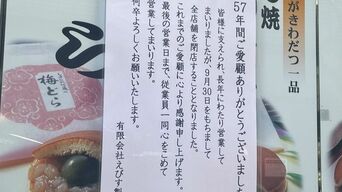 がきわだつ一品
焼
57年間ご愛顧ありがとうございまし
皆様に支えられ長年にわたり営業して
まいりましたが、9月30日をもちまして
全店舗を閉店することとなりました。
これまでのご愛顧に心より感謝申し上げます。
最後の営業日まで、従業員一同心をこめて
営業してまいります。
何卒よろしくお願いいたします。
有限会社えびす
梅どら